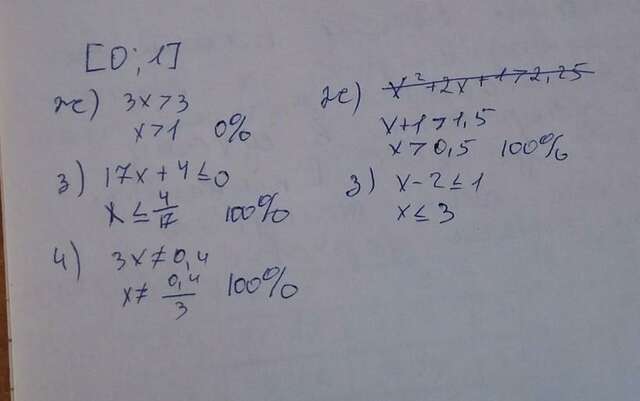 [0;1]
ж) 3x>3
x>1 0%
з) 17x+4≤0
x≤4/17 100%
и) 3x≠0,4
x≠0,4/3 100%
ж) x²+2x+1>2,25
x+1>1,5
x>0,5 100%
з) x-2≤1
x≤3